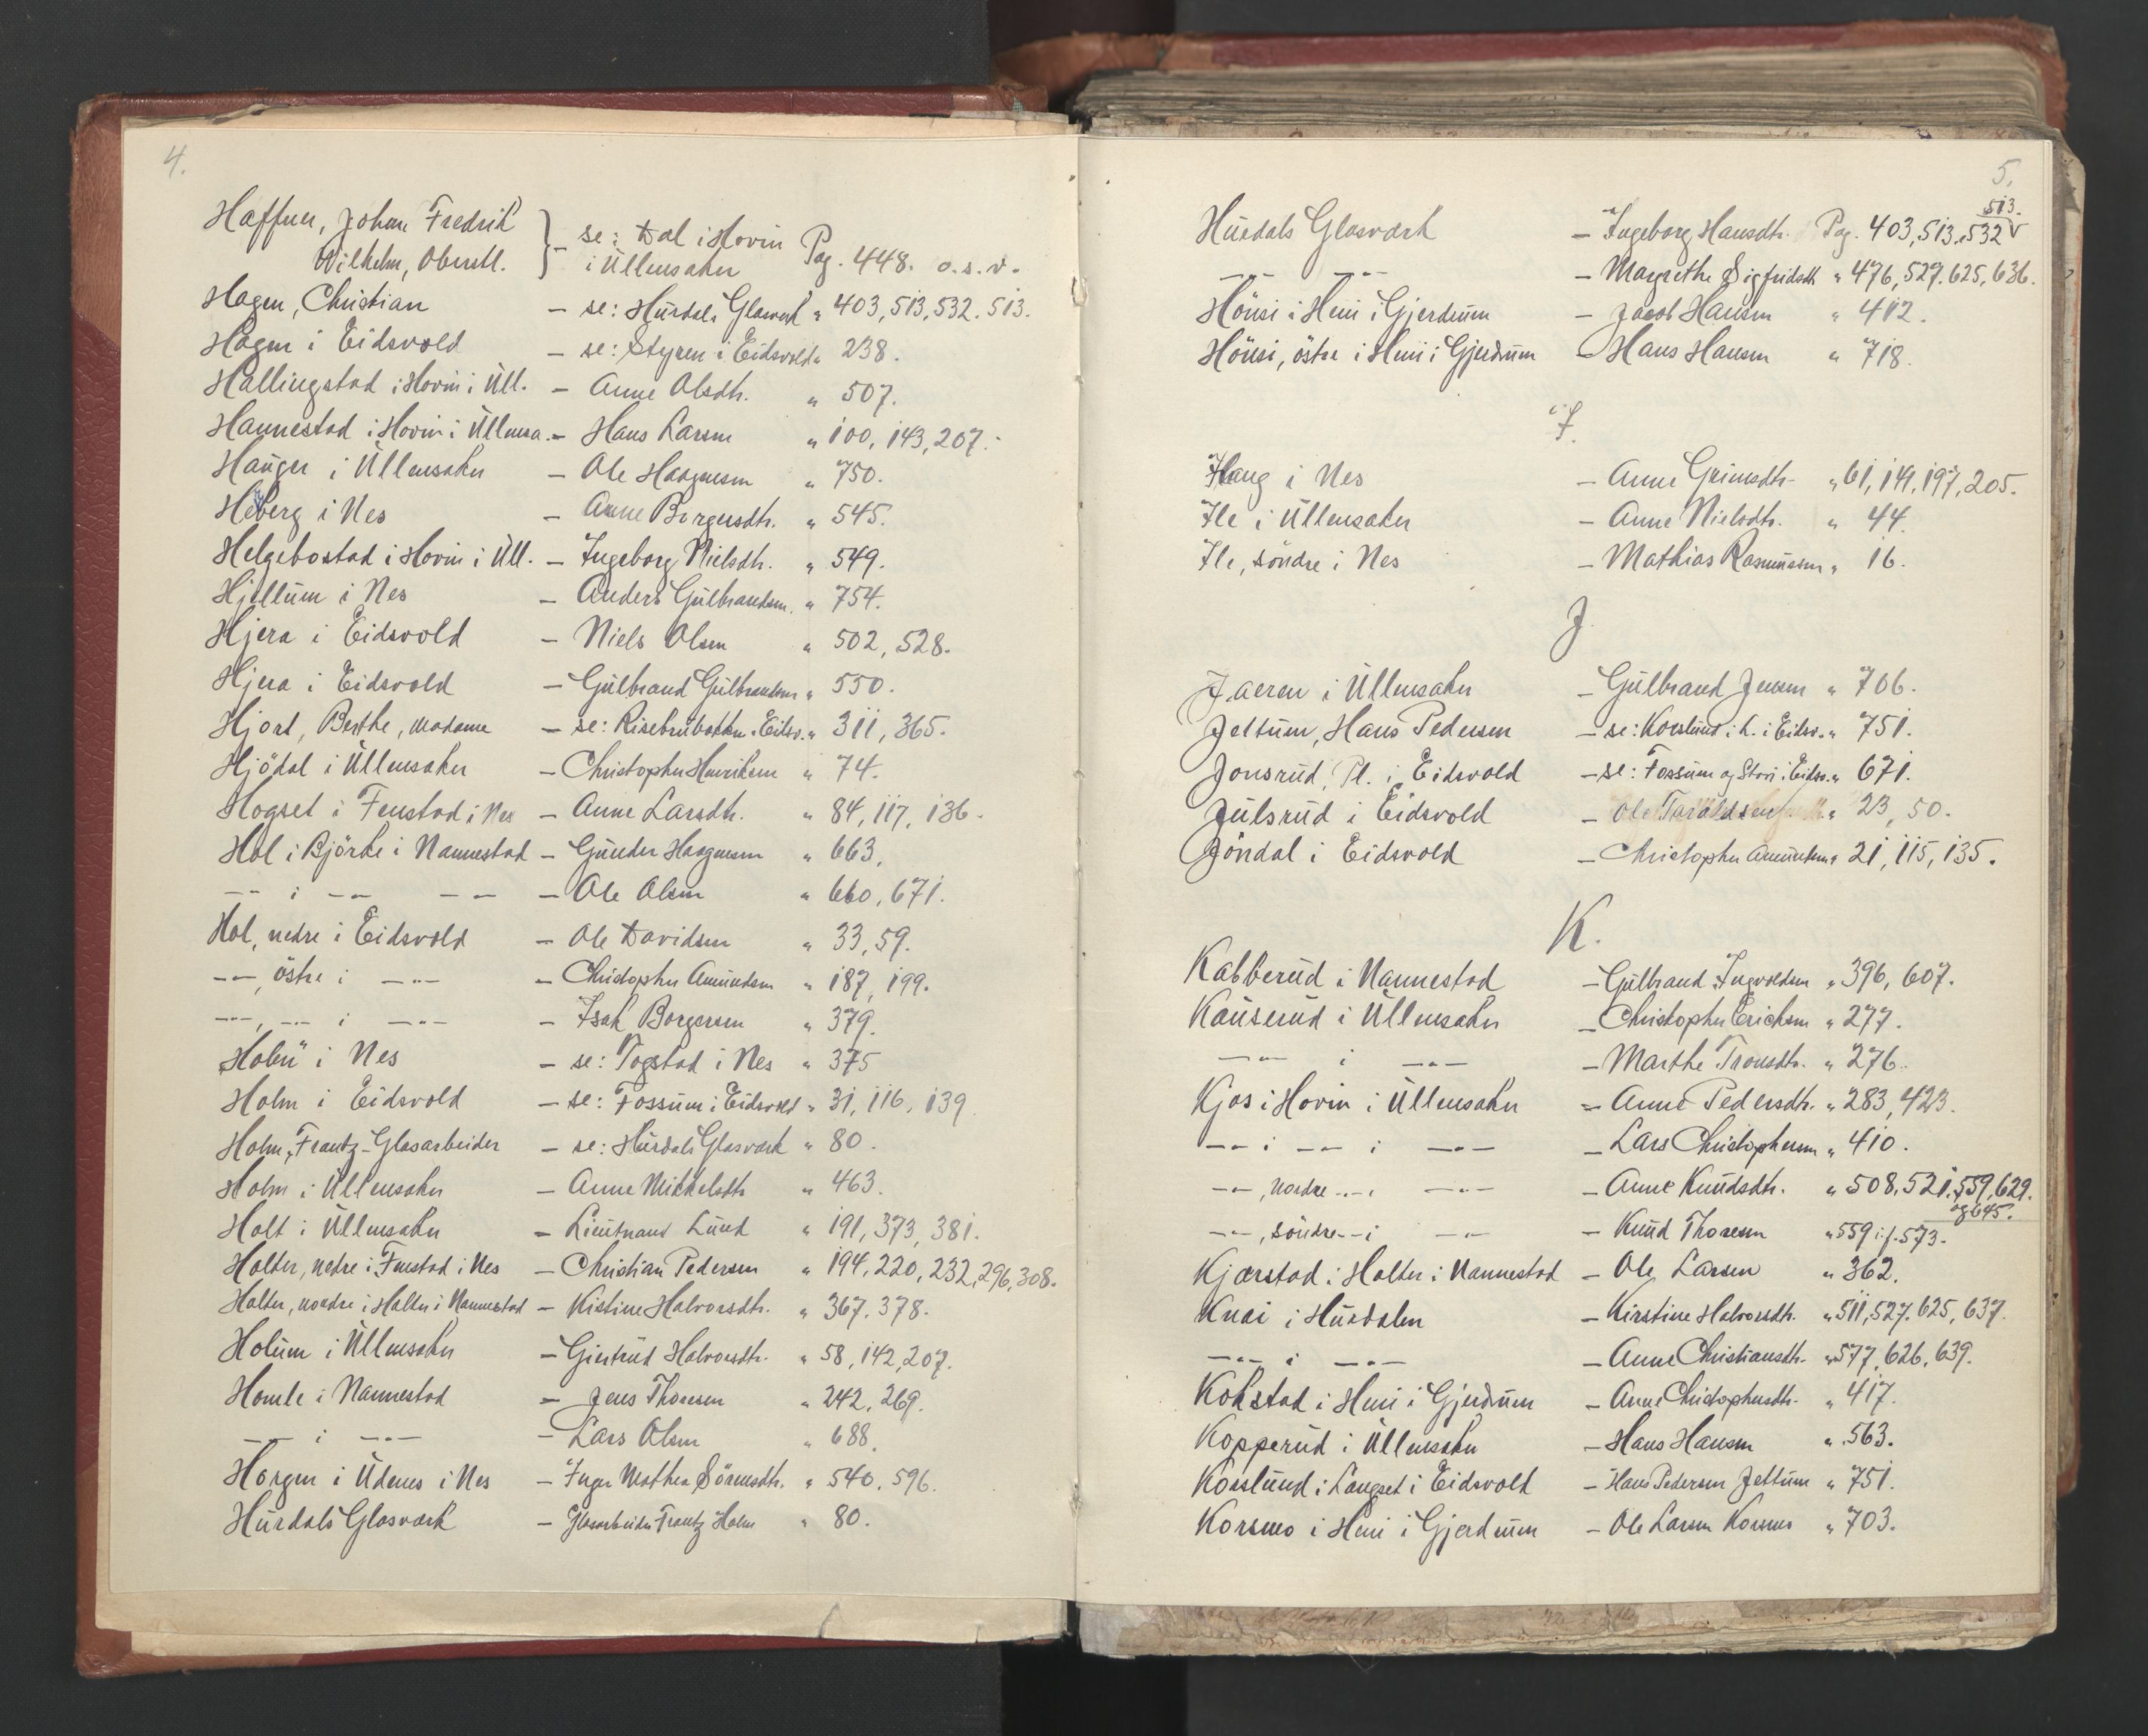 4.
Haffner, Johan Fredrik
Wilhelm, Oberstl. } – se: Dal i Hovin i Üllensaker Pag. 448. o.s.v.
Hagen, Christian – se: Hurdals Glasværk " 403, 513, 532. 513.
Hagen i Eidsvold – se: Styren i Eidsvold " 238.
Hallingstad i Hovin i Üll. – Anne Olsdtr. " 507.
Hannestad i Hovin i Üllensa. – Hans Larsen " 100, 143, 207.
Hauger i Üllensaker – Ole Haagensen " 750.
Heberg i Nes – Anne Borgersdtr. " 545.
Helgebostad i Hovin i Üll. – Ingeborg Nielsdtr. " 549.
Hjellum i Nes – Anders Gulbrandsen " 754.
Hjera i Eidsvold – Niels Olsen " 502, 528.
Hjera i Eidsvold – Gulbrand Gulbrandsen " 550.
Hjort, Berthe, madame – se: Risebrubakken i Eidsv. " 311, 365.
Hjödal i Üllensaker – Christopher Henriksen " 74.
Hogset i Fenstad i Nes – Anne Larsdtr. " 84, 117, 136.
Hol i Björke i Nannestad – Gunder Haagensen " 663.
–"– i –"– –"– – Ole Olsen " 660, 671.
Hol, nedre i Eidsvold – Ole Davidsen " 33, 59.
–"–, östre i –"– – Christopher Amundsen " 187, 199.
–"–, –"– i –"– – Isak Borgersen " 379.
"Holen" i Nes – se: Togstad i Nes " 375
Holm i Eidsvold – se: Fossum i Eidsvold " 31, 116, 139
Holm, Frantz – Glasarbeider – se: Hurdals Glasværk " 80.
Holm i Üllensaker – Anne Mikkelsdtr. " 463.
Holt i Üllensaker – Lieutnant Lund " 191, 373, 381.
Holter, nedre i Fenstad i Nes – Christian Pedersen " 194, 220, 232, 296, 308.
Holter, nordre i Holter i Nannestad – Kistine Halvorsdtr. " 367, 378.
Holum i Üllensaker – Giertrud Halvorsdtr. " 58, 142, 207.
Homle i Nannestad – Jens Thoresen " 242, 269.
–"– i –"– – Lars Olsen " 688.
Horgen i Üdenes i Nes – Inger Mathea Sörensdtr. " 540, 596.
Hurdals Glasværk – Glasarbeider Frantz Holm " 80.
5.
513.
Hurdals Glasværk – Ingeborg Hansdtr. Pag. 403, 513, 532 V
–"– –"– – Margrethe Sigfridsdtr. " 476, 527, 625, 636.
Hönsi i Heni i Gjerdrum – Jacob Hansen " 412.
Hönsi, östre i Heni i Gjerdrum – Hans Hansen " 718.
I.
Haug i Nes – Anne Grimsdtr. " 61, 141, 197, 205.
Ile i Üllensaker – Anne Nielsdtr. " 44.
Ile, söndre i Nes – Mathias Rasmussen " 16.
J.
Jaeren i Üllensaker – Gulbrand Jensen " 706.
Jeltum, Hans Pedersen – se: Korslund i L. i Eidsv. " 751.
Jonsrud, Pl. i Eidsvold – se: Fossum og Stori i Eidsv. " 671.
Julsrud i Eidsvold – Ole Taraldsen " 23, 50.
Jöndal i Eidsvold – Christopher Amundsen " 21, 115, 135.
K.
Kabberud i Nannestad – Gulbrand Ingvoldsen " 396, 607.
Kauserud i Üllensaker – Christopher Erichsen " 277.
–"– i –"– – Marthe Tronsdtr. " 276.
Kjos i Hovin i Üllensaker – Anne Pedersdtr. " 283, 423.
–"– i –"– i –"– – Lars Christophersen " 410.
–"–, nordre –"– i –"– – Anne Knudsdtr. " 508, 521, 559, 629.
og 645.
–"–, söndre –"– i –"– – Knud Thoresen " 559 i f. 573.
Kjærstad i Holter i Nannestad – Ole Larsen " 362.
Knai i Hurdalen – Kirstine Halvorsdtr. " 511, 527, 625, 637.
–"– i –"– – Anne Christiansdtr. " 577, 626, 639.
Kokstad i Heni i Gjerdrum – Anne Christophersdtr. " 417.
Kopperud i Üllensaker – Hans Hansen " 563.
Korslund i Langset i Eidsvold – Hans Pedersen Jeltum " 751.
Korsmo i Heni i Gjerdrum – Ole Larsen Korsmo " 703.